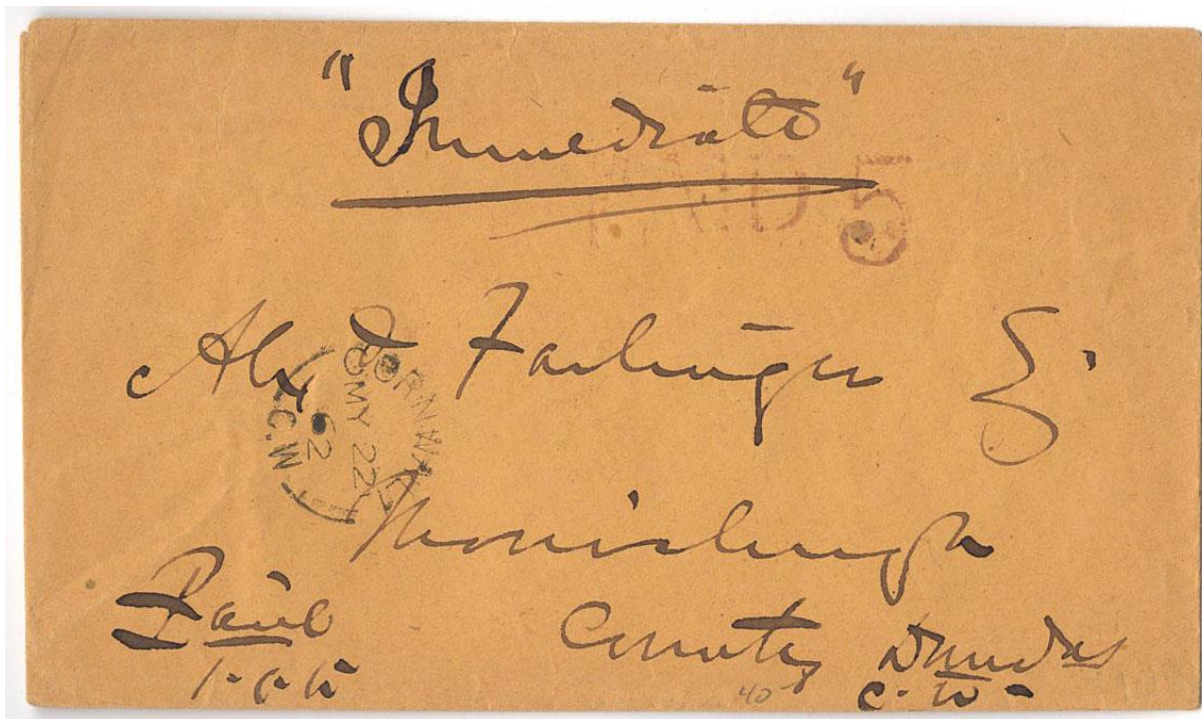 "Immediate"
PAID 5
Alexr Farlinger E.
CORNWALL
MY 22
62
C.W
Morrisburgh
Paid
County Dundas
C. W.
40